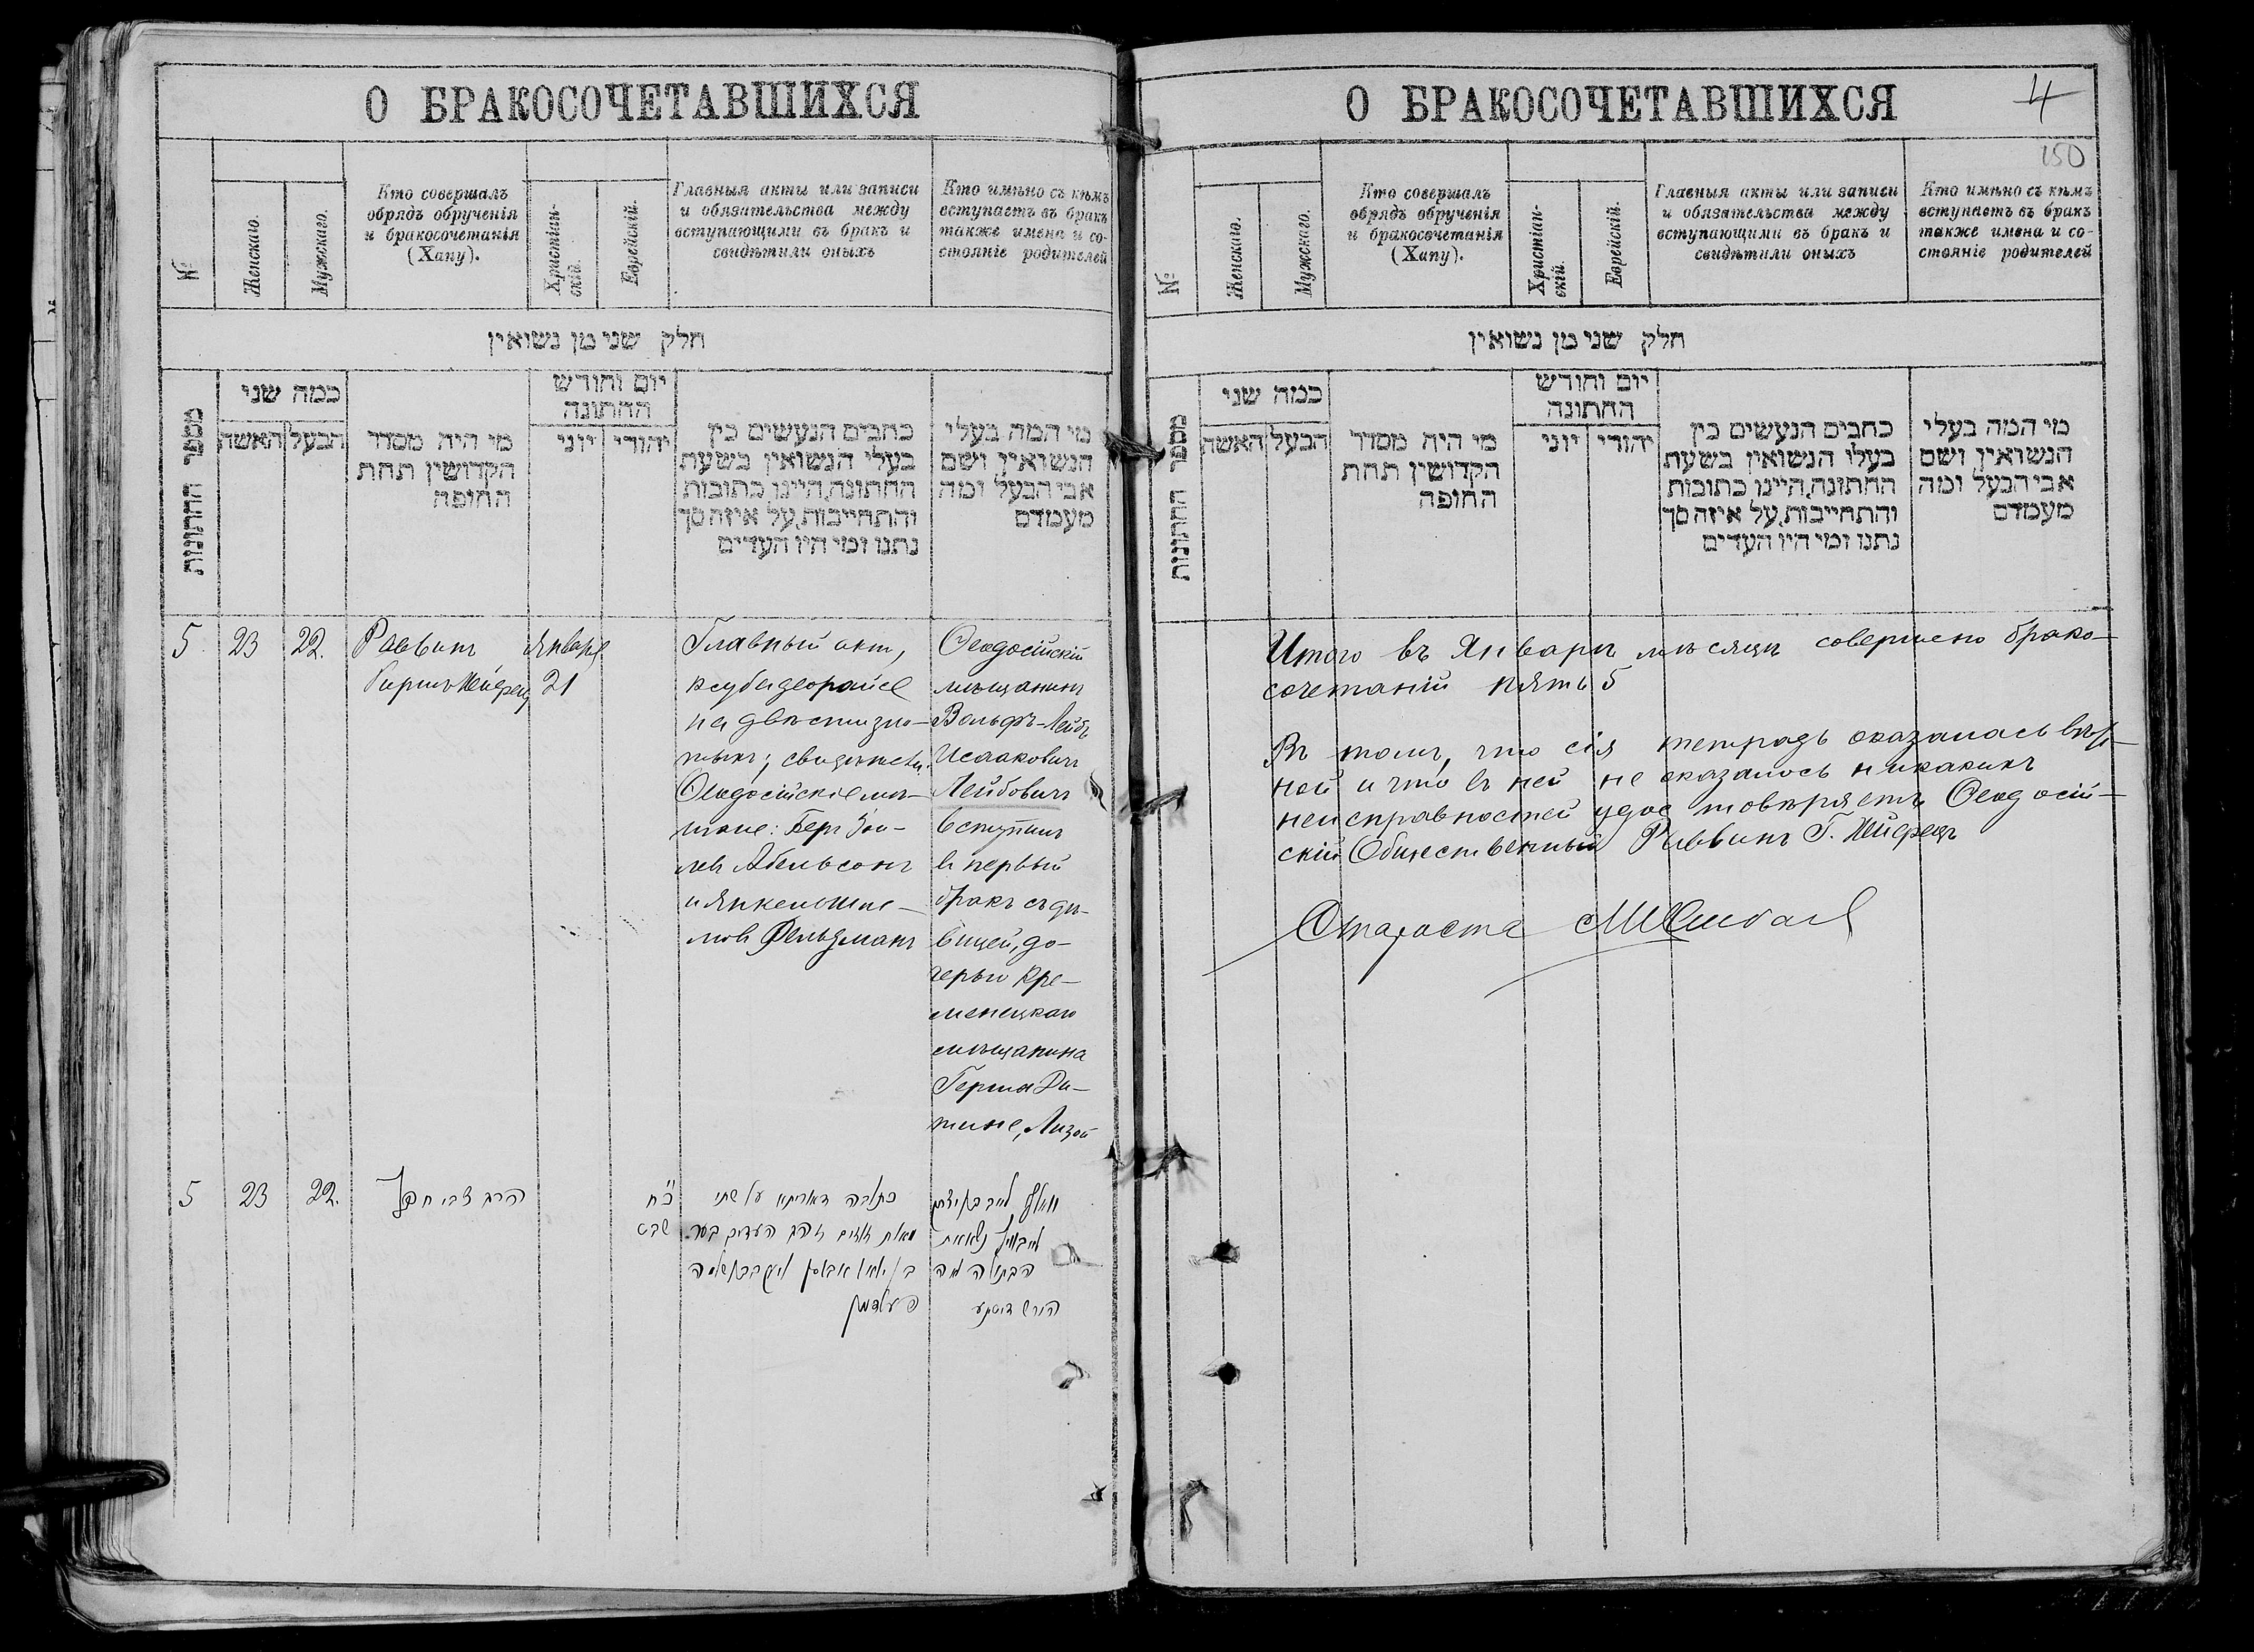 О БРАКОСОЧЕТАВШИХСЯ
№
Женскаго.
Мужскаго.
Кто совершалъ
обрядъ обрученія
и бракосочетанія
(Хапу).
Христіан-
скій.
Еврейскій.
Главныя акты или записи
и обязательства между
вступающими въ бракъ и
свидѣтили оныхъ
Кто имѣно съ кѣмъ
вступаетъ въ бракъ
также имена и со-
стояніе родителей
חלק שני מן נשואין
מספר החתונות
כמה שני
האשה
הבעל
מי היה מסדר
הקדושין תחת
החופה
יום וחודש
החתונה
יוני
יהודי
כתבים הנעשים בין
בעלי הנשואין בשעת
החתונה, היינו כתובות
והתחייבות, על איזה סך
נתנו ומי היו העדים
מי המה בעלי
הנשואין ושם
אבי הבעל ומה
מעמדם
5
23
22.
Раввинъ
Гиршъ Хейфецъ
Января
21
Главный актъ,
ксуба деорайсе
на двѣсти зло-
тыхъ; свидѣтели:
Ѳеодосійскіе мѣ-
щане: Беръ
Абельсонъ
и Янкель
Фельдманъ
Ѳеодосійскій
мѣщанинъ
Вольфъ-Лейбъ
Исааковичъ
Лейбовичъ
вступилъ
въ первый
бракъ съ дѣ-
вицей, до-
черью Кре-
менецкаго
мѣщанина
Герша
Лизой
5
23
22.
הרב צבי חפץ
כ״ח
שבט
כתובה דאוריתא על שתי
מאות זוזים והעדים בער
פעלדמאן
וואלף לייב
לייבאוויץ
הבתולה
הירש
О БРАКОСОЧЕТАВШИХСЯ
4
150
№
Женскаго.
Мужскаго.
Кто совершалъ
обрядъ обрученія
и бракосочетанія
(Хапу).
Христіан-
скій.
Еврейскій.
Главныя акты или записи
и обязательства между
вступающими въ бракъ и
свидѣтили оныхъ
Кто имѣно съ кѣмъ
вступаетъ въ бракъ
также имена и со-
стояніе родителей
חלק שני מן נשואין
מספר החתונות
כמה שני
האשה
הבעל
מי היה מסדר
הקדושין תחת
החופה
יום וחודש
החתונה
יוני
יהודי
כתבים הנעשים בין
בעלי הנשואין בשעת
החתונה, היינו כתובות
והתחייבות, על איזה סך
נתנו ומי היו העדים
מי המה בעלי
הנשואין ושם
אבי הבעל ומה
מעמדם
Итого въ Январѣ мѣсяцѣ совершено брако-
сочетаній пять 5
Въ томъ, что сія тетрадь оказалась вѣр-
ной и что въ ней не оказалось никакихъ
неисправностей удостовѣряетъ Ѳеодосій-
скій Общественный Раввинъ Г. Хейфецъ
Староста